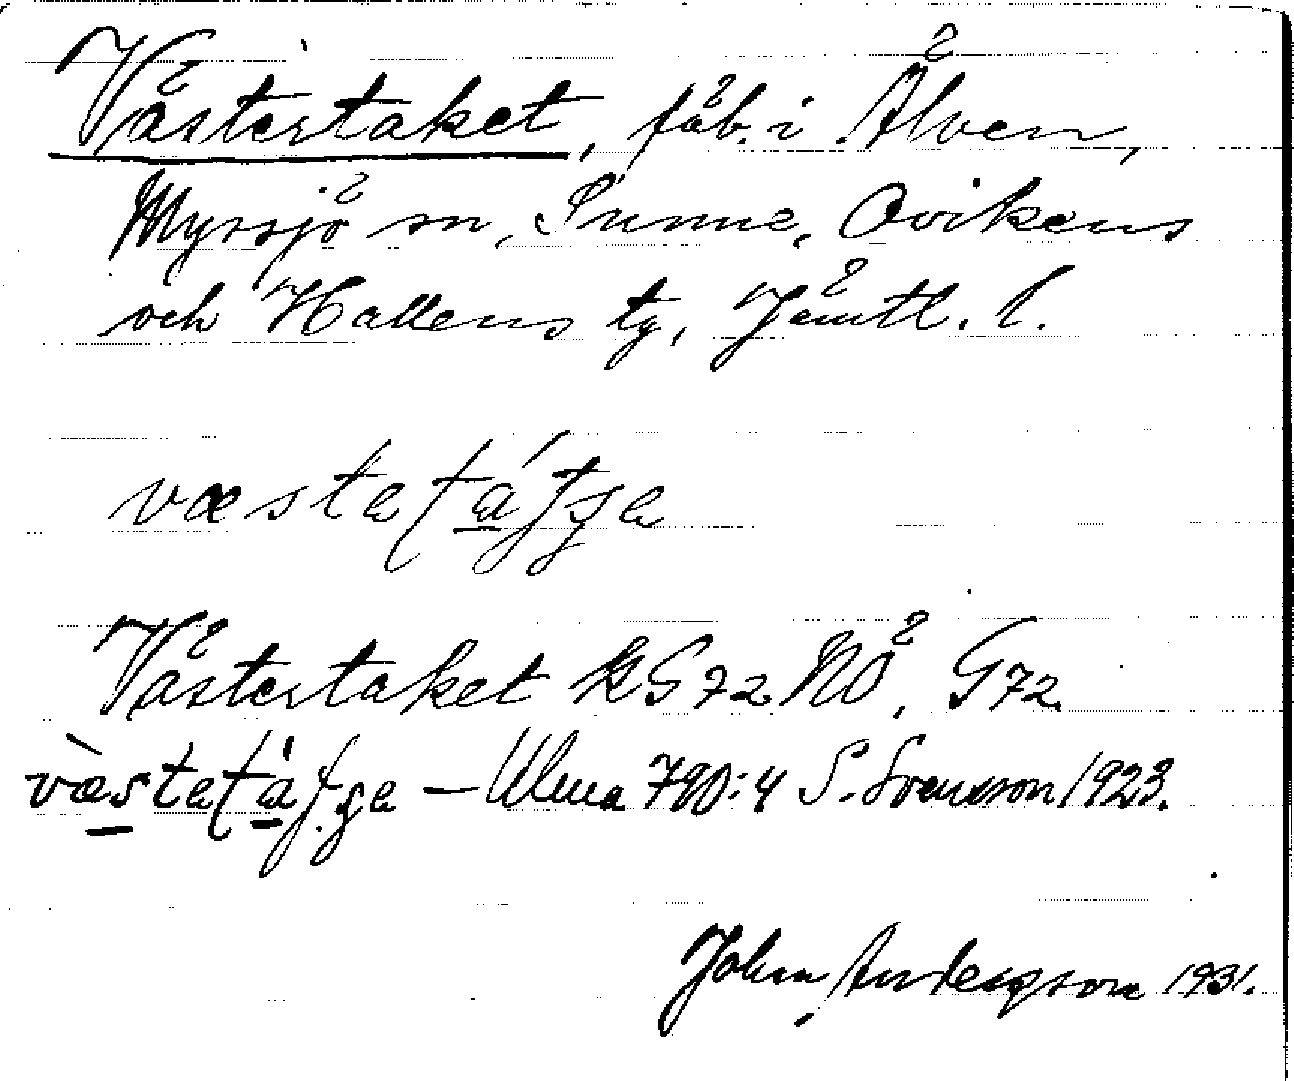 Västertaket, fäb. i Älven,
Myrsjö sn, Sunne, Ovikens
och Hallens tg, Jämtl. l.
væsteʈa̲ʃʂe
Västertaket KG72 NÖ, G72.
væsteʈa̲ʃʂe — Ulma 790:4 S. Svensson 1923.
John Andersson 1931.